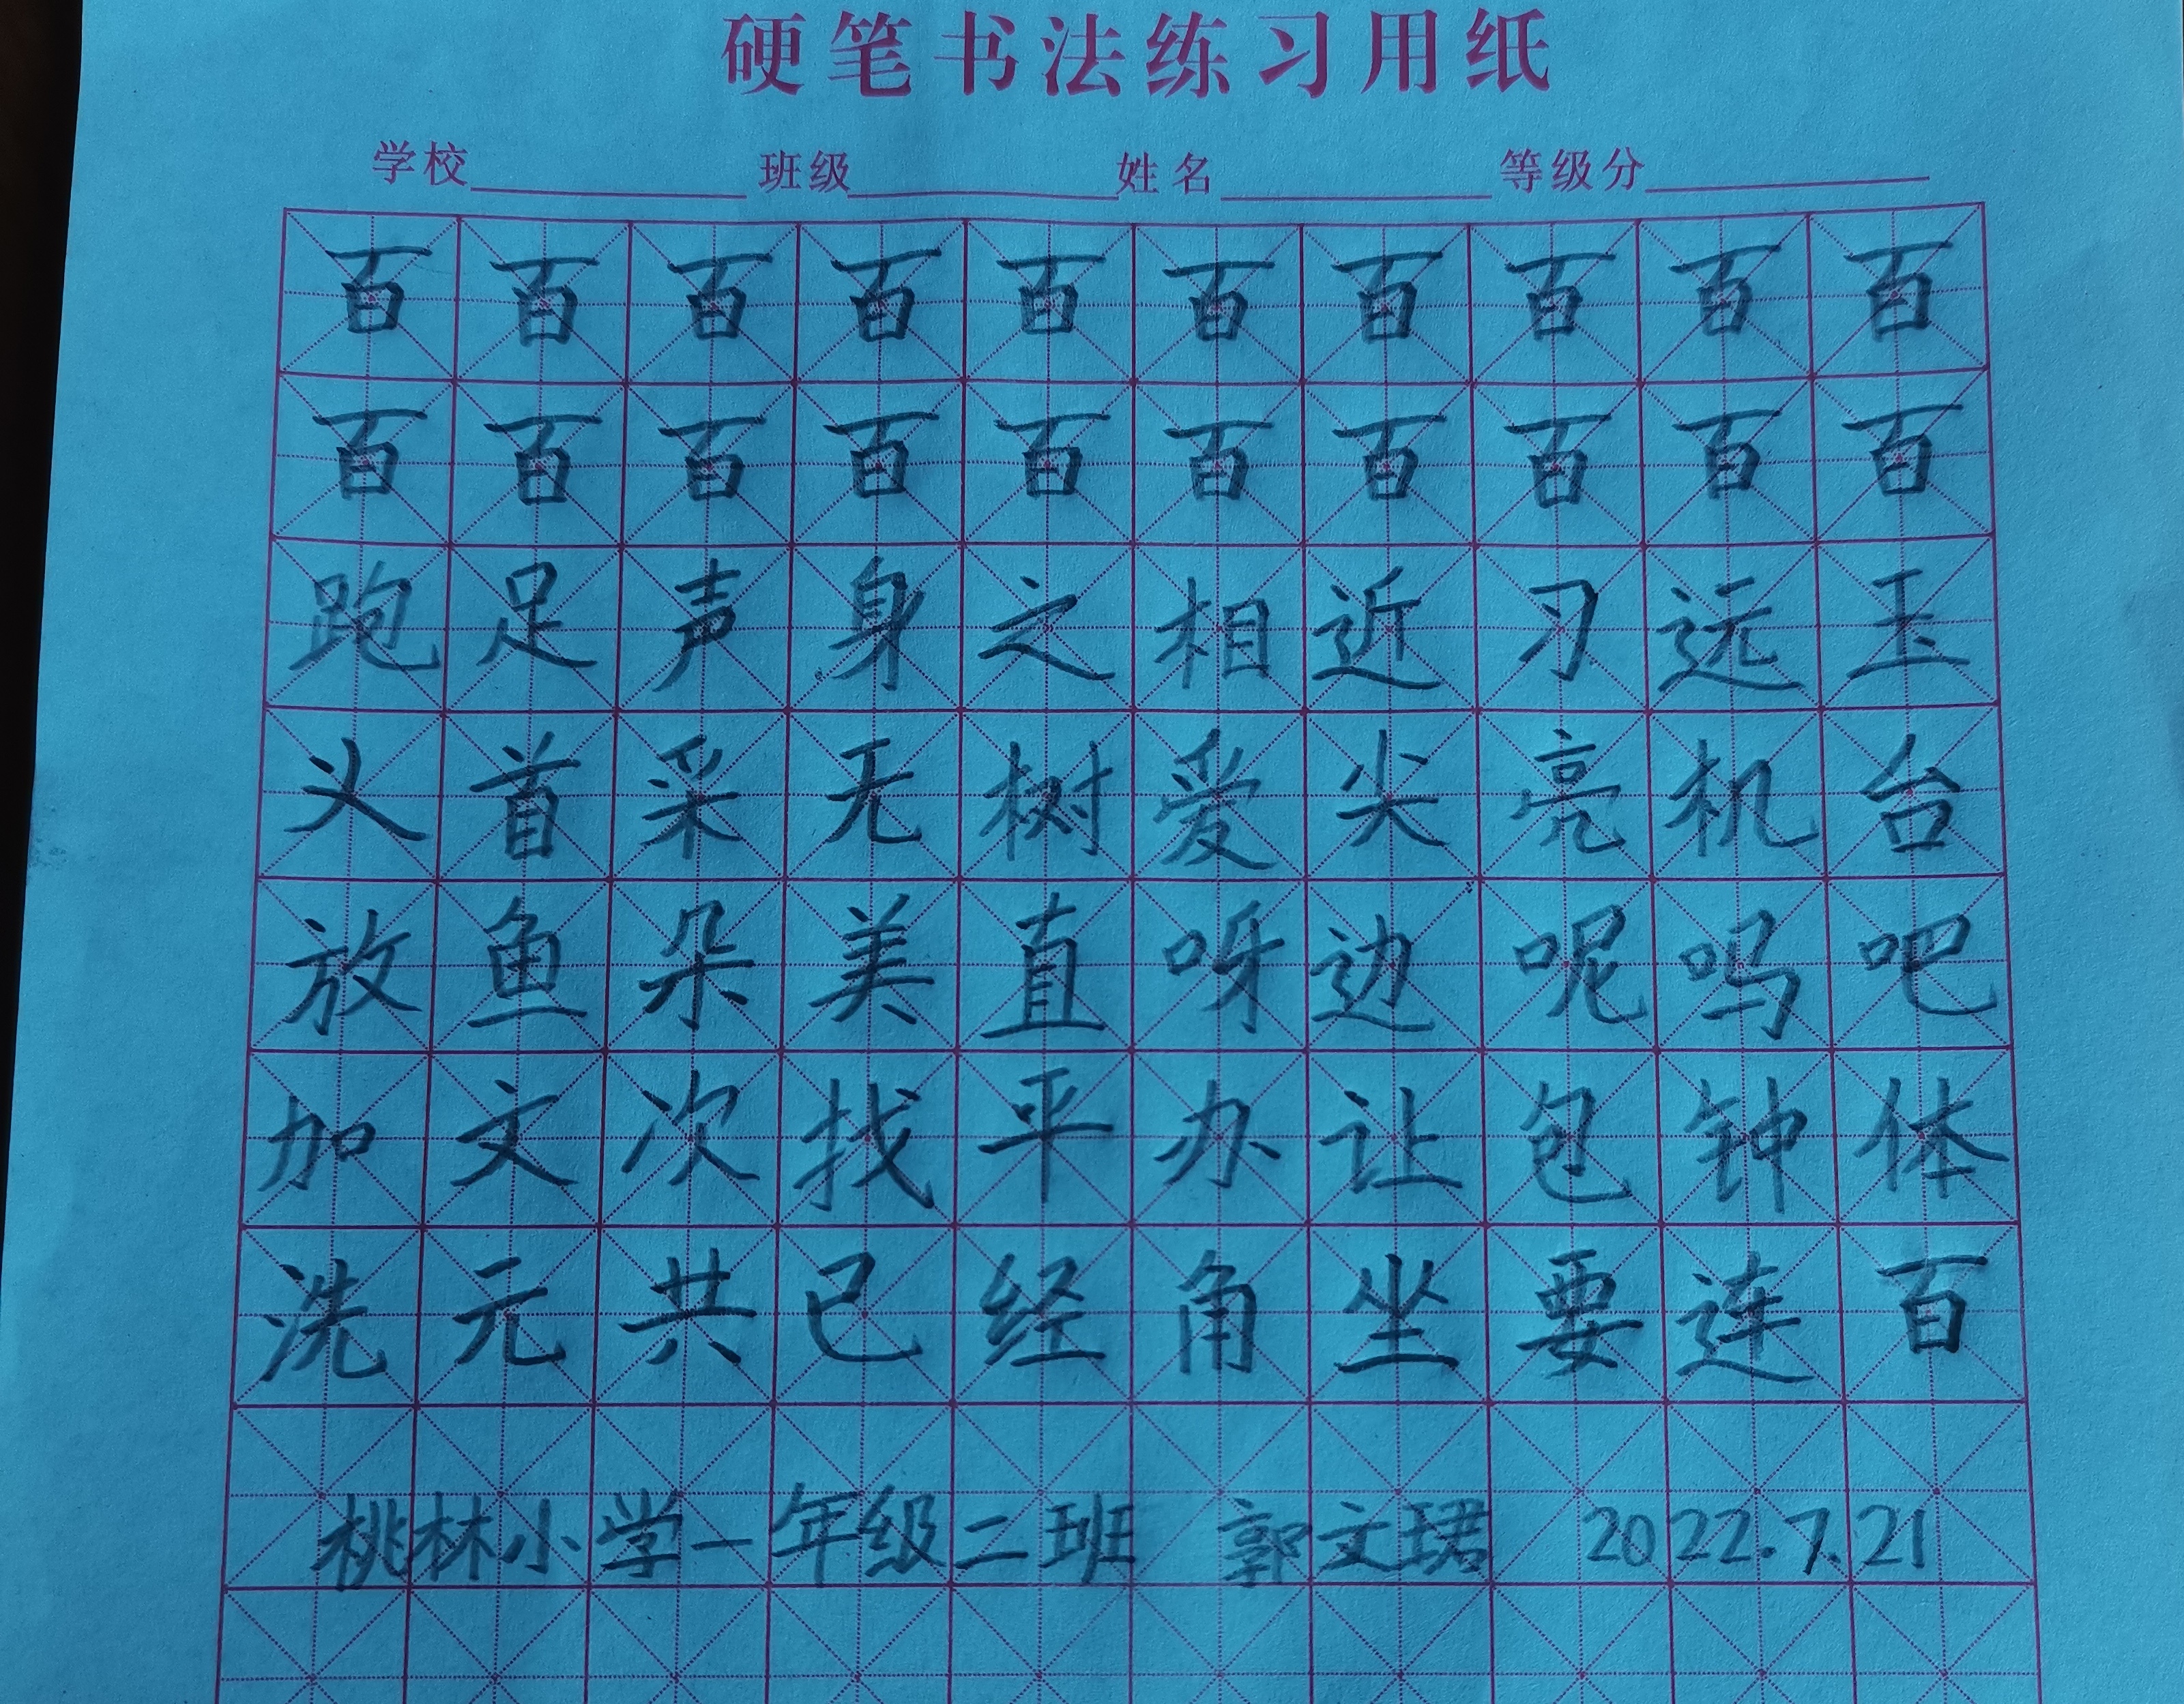 硬笔书法练习用纸
学校 班级 姓名 等级分
百百百百百百百百百百
百百百百百百百百百百
跑足声身之相近习远玉
义首采无树爱尖亮机台
放鱼朵美直呀边呢吗吧
加文次找平办让包钟体
洗元共已经角坐要连百
桃林小学一年级二班 郭文珺 2022.7.21